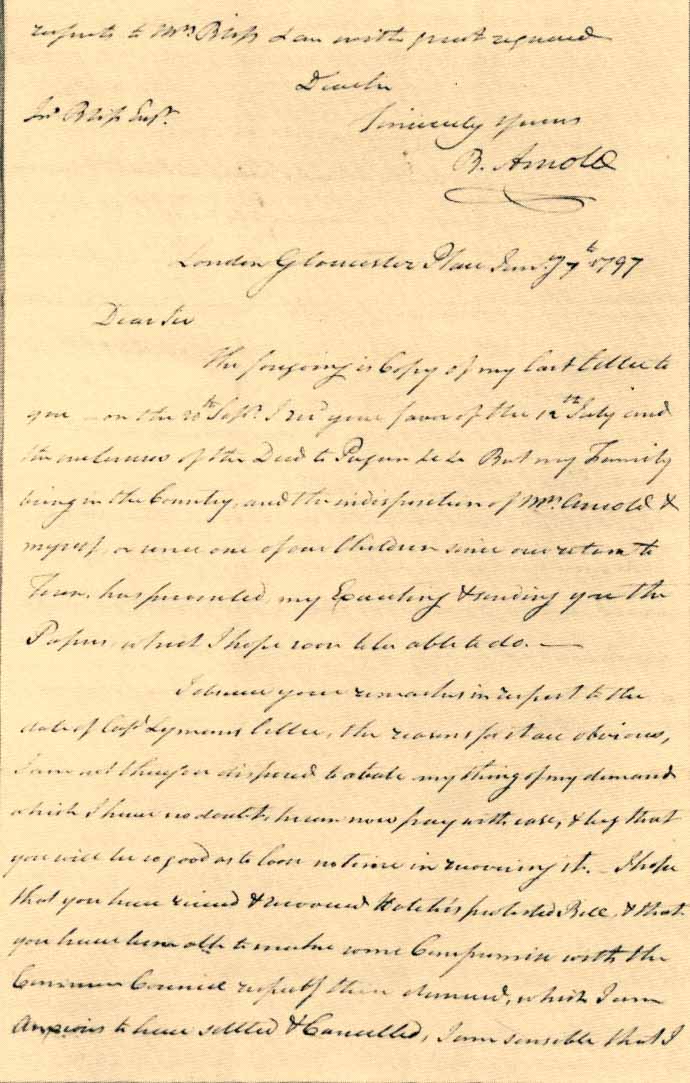 respects to Mrs Bliss & am with great regard
Dear Sir
Jno Bliss Esqr.
Sincerely yours
B. Arnold
London Gloucester Place Jany 7th 1797
Dear Sir
The foregoing is Copy of my last letter to
you – on the 20th Sept. I recd your favor of the 12th July and
the inclosures of the Deed to Pagan &c &c But my Family
being in the Country, and the indisposition of Mrs. Arnold &
myself, or some one of our Children since our return to
Town, has prevented my Executing & sending you the
Papers, which I hope soon to be able to do. —
I observe your remarks in respect to the
date of Capt Lymans letter, the reasons for it are obvious,
I am not therefore disposed to abate any thing of my demand
which I have no doubt he can now pay with ease, & beg that
you will be so good as to loose no time in recovering it. – I hope
that you have recived & recovered Hatch's protested Bill, & that
you have been able to make some Compromise with the
Common Council respectg their demand, which I am
Anxious to have settled & Cancelled, I am sensible that I